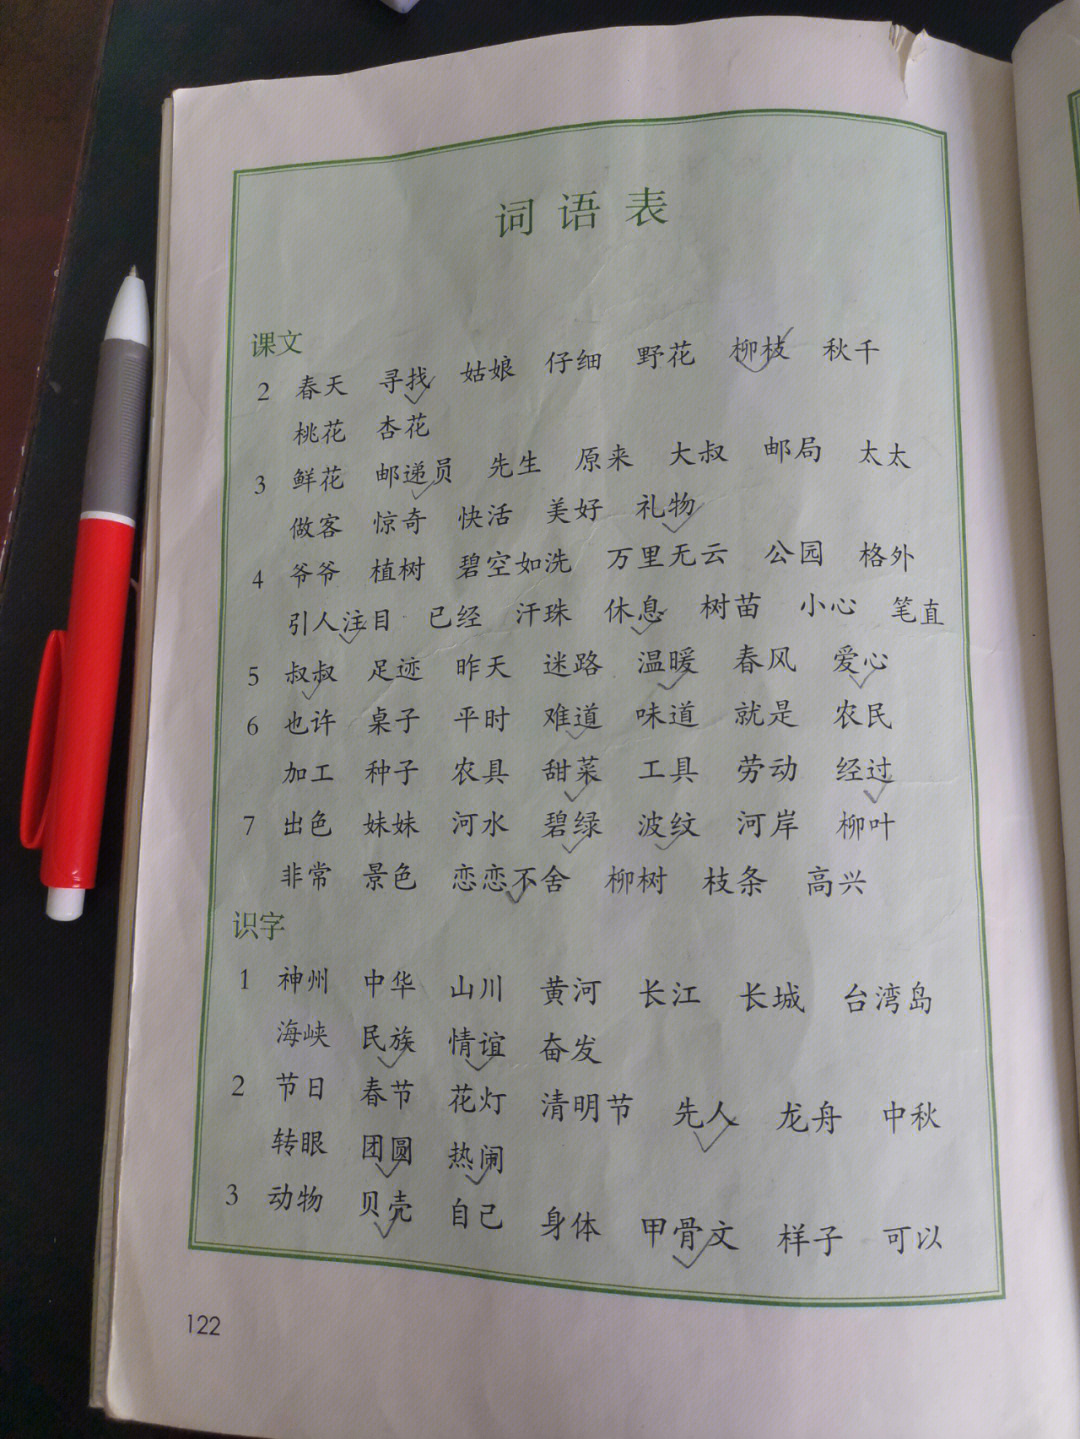 词语表
课文
2 春天 寻找 姑娘 仔细 野花 柳枝 秋千
桃花 杏花
3 鲜花 邮递员 先生 原来 大叔 邮局 太太
做客 惊奇 快活 美好 礼物
4 爷爷 植树 碧空如洗 万里无云 公园 格外
引人注目 已经 汗珠 休息 树苗 小心 笔直
5 叔叔 足迹 昨天 迷路 温暖 春风 爱心
6 也许 桌子 平时 难道 味道 就是 农民
加工 种子 农具 甜菜 工具 劳动 经过
7 出色 妹妹 河水 碧绿 波纹 河岸 柳叶
非常 景色 恋恋不舍 柳树 枝条 高兴
识字
1 神州 中华 山川 黄河 长江 长城 台湾岛
海峡 民族 情谊 奋发
2 节日 春节 花灯 清明节 先人 龙舟 中秋
转眼 团圆 热闹
3 动物 贝壳 自己 身体 甲骨文 样子 可以
122